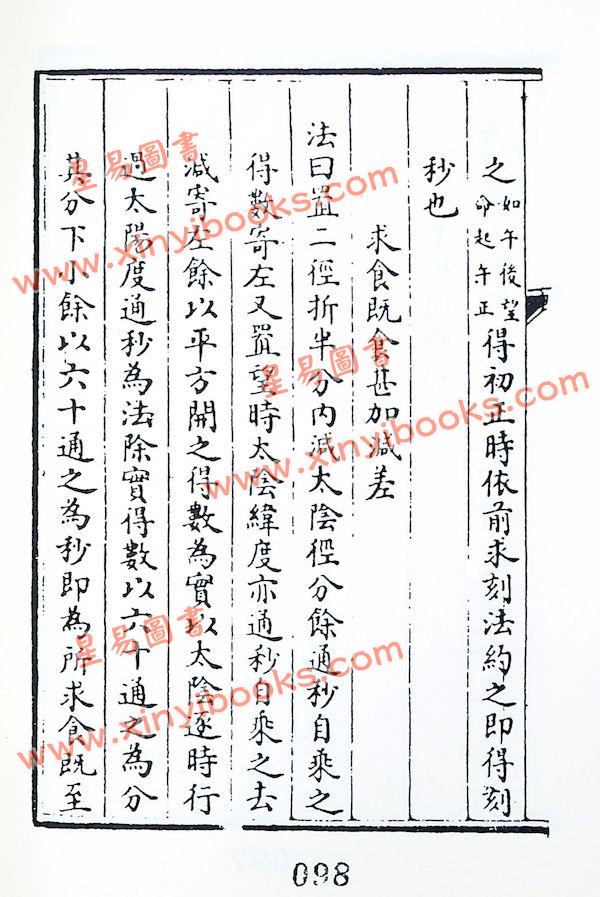 之如午後望命起午正得初正時依前求刻法約之即得刻
秒也
求食既食甚加減差
法曰置二徑折半分内減太陰徑分餘通秒自乘之
得數寄左又置望時太陰緯度亦通秒自乘之去
減寄左餘以平方開之得數為實以太陰逐時行
過太陽度通秒為法除實得數以六十通之為分
其分下小餘以六十通之為秒即為所求食既至
098
星易圖書
www.xinyibooks.com
星易圖書
www.xinyibooks.com
星易圖書
www.xinyibooks.com